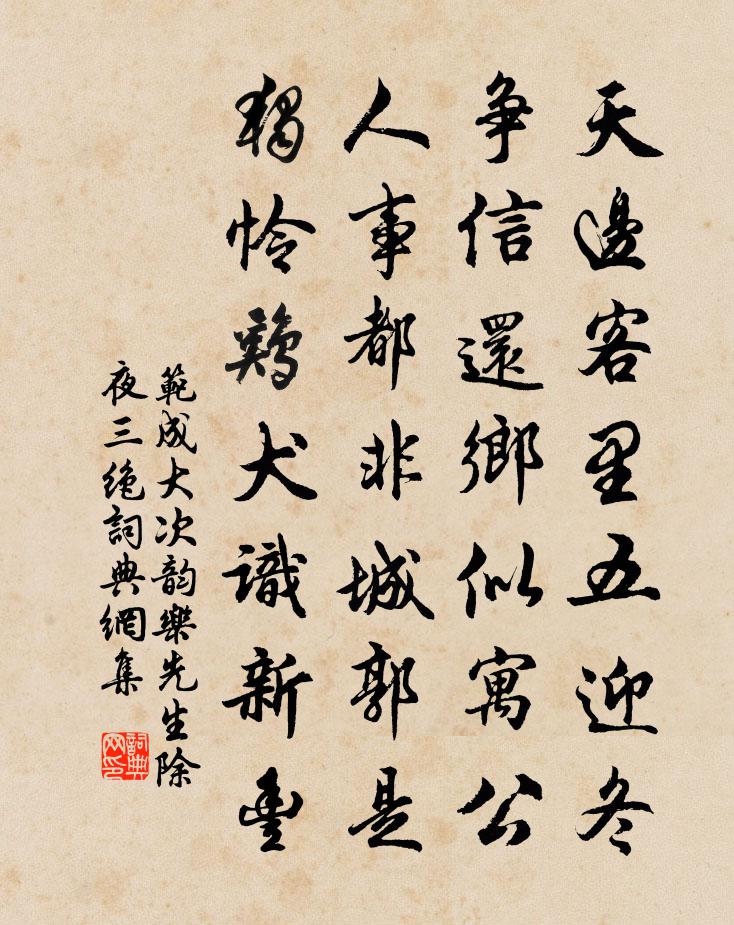 天邊客里五迎冬
爭信還鄉似寓公
人事都非城郭是
獨憐鷄犬識新豐
範成大次韵樂先生除
夜三绝詞典網集
詞典網印